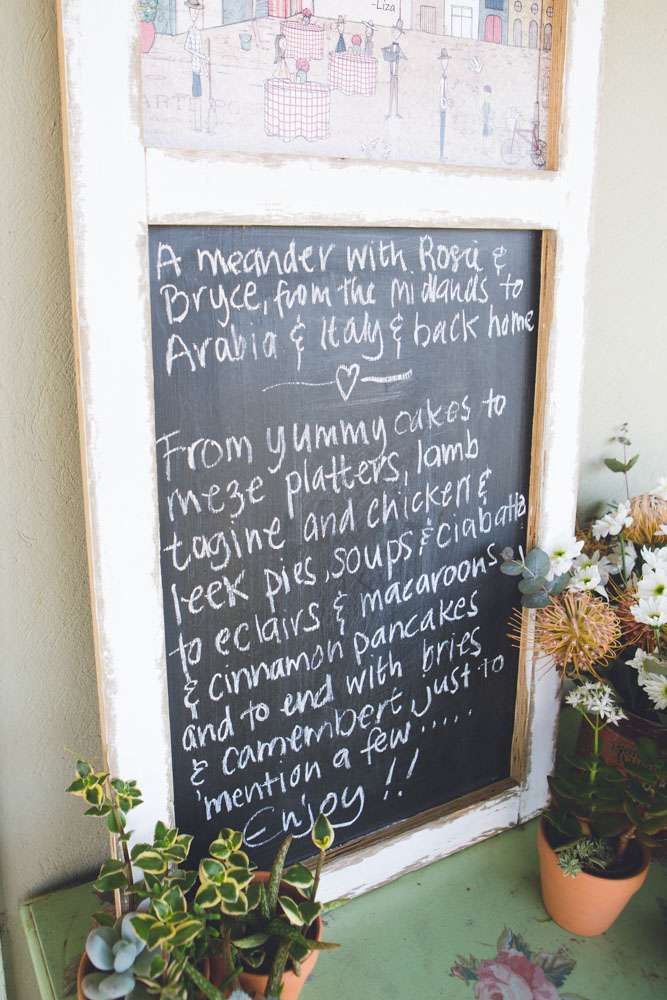 -Liza
A meander with Rosie &
Bryce, from the midlands to
Arabia & Italy & back home
From yummy cakes to
meze platters, lamb
tagine and chicken &
leek pies, soups & ciabatta
to eclairs & macaroons
& cinnamon pancakes
and to end with bries
& camembert just to
mention a few.....
Enjoy!!